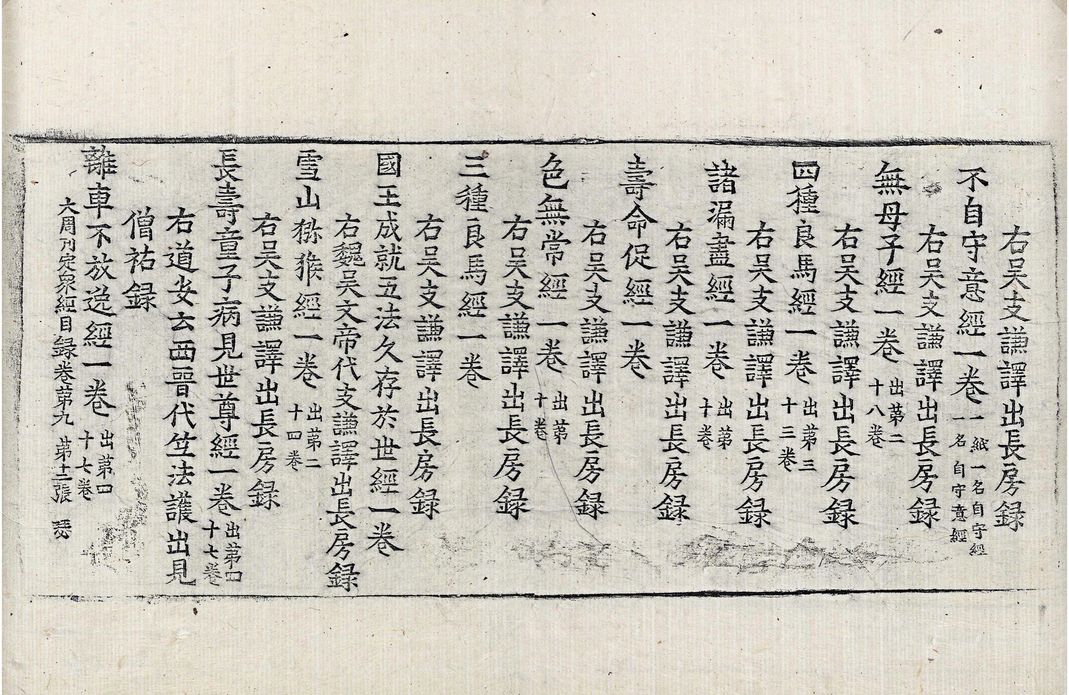 右吴支謙譯出長房録
不自守意經一卷一紙一名自守經一名自守意經
右吴支謙譯出長房録
無母子經一卷出第二十八卷
右吴支謙譯出長房録
四種良馬經一卷出第三十三卷
右吴支謙譯出長房録
諸漏盡經一卷出第十卷
右吴支謙譯出長房録
壽命促經一卷
右吴支謙譯出長房録
色無常經一卷出第十卷
右吴支謙譯出長房録
三種良馬經一卷
右吴支謙譯出長房録
國王成就五法久存於世經一卷
右魏吴文帝代支謙譯出長房録
雪山獼猴經一卷出第二十四卷
右吴支謙譯出長房録
長壽童子病見世尊經一卷出第四十七卷
右道安云西晉代竺法護出見
僧祐録
離車不放逸經一卷出第四十七卷
大周刊定衆經目録卷第九 第十二張